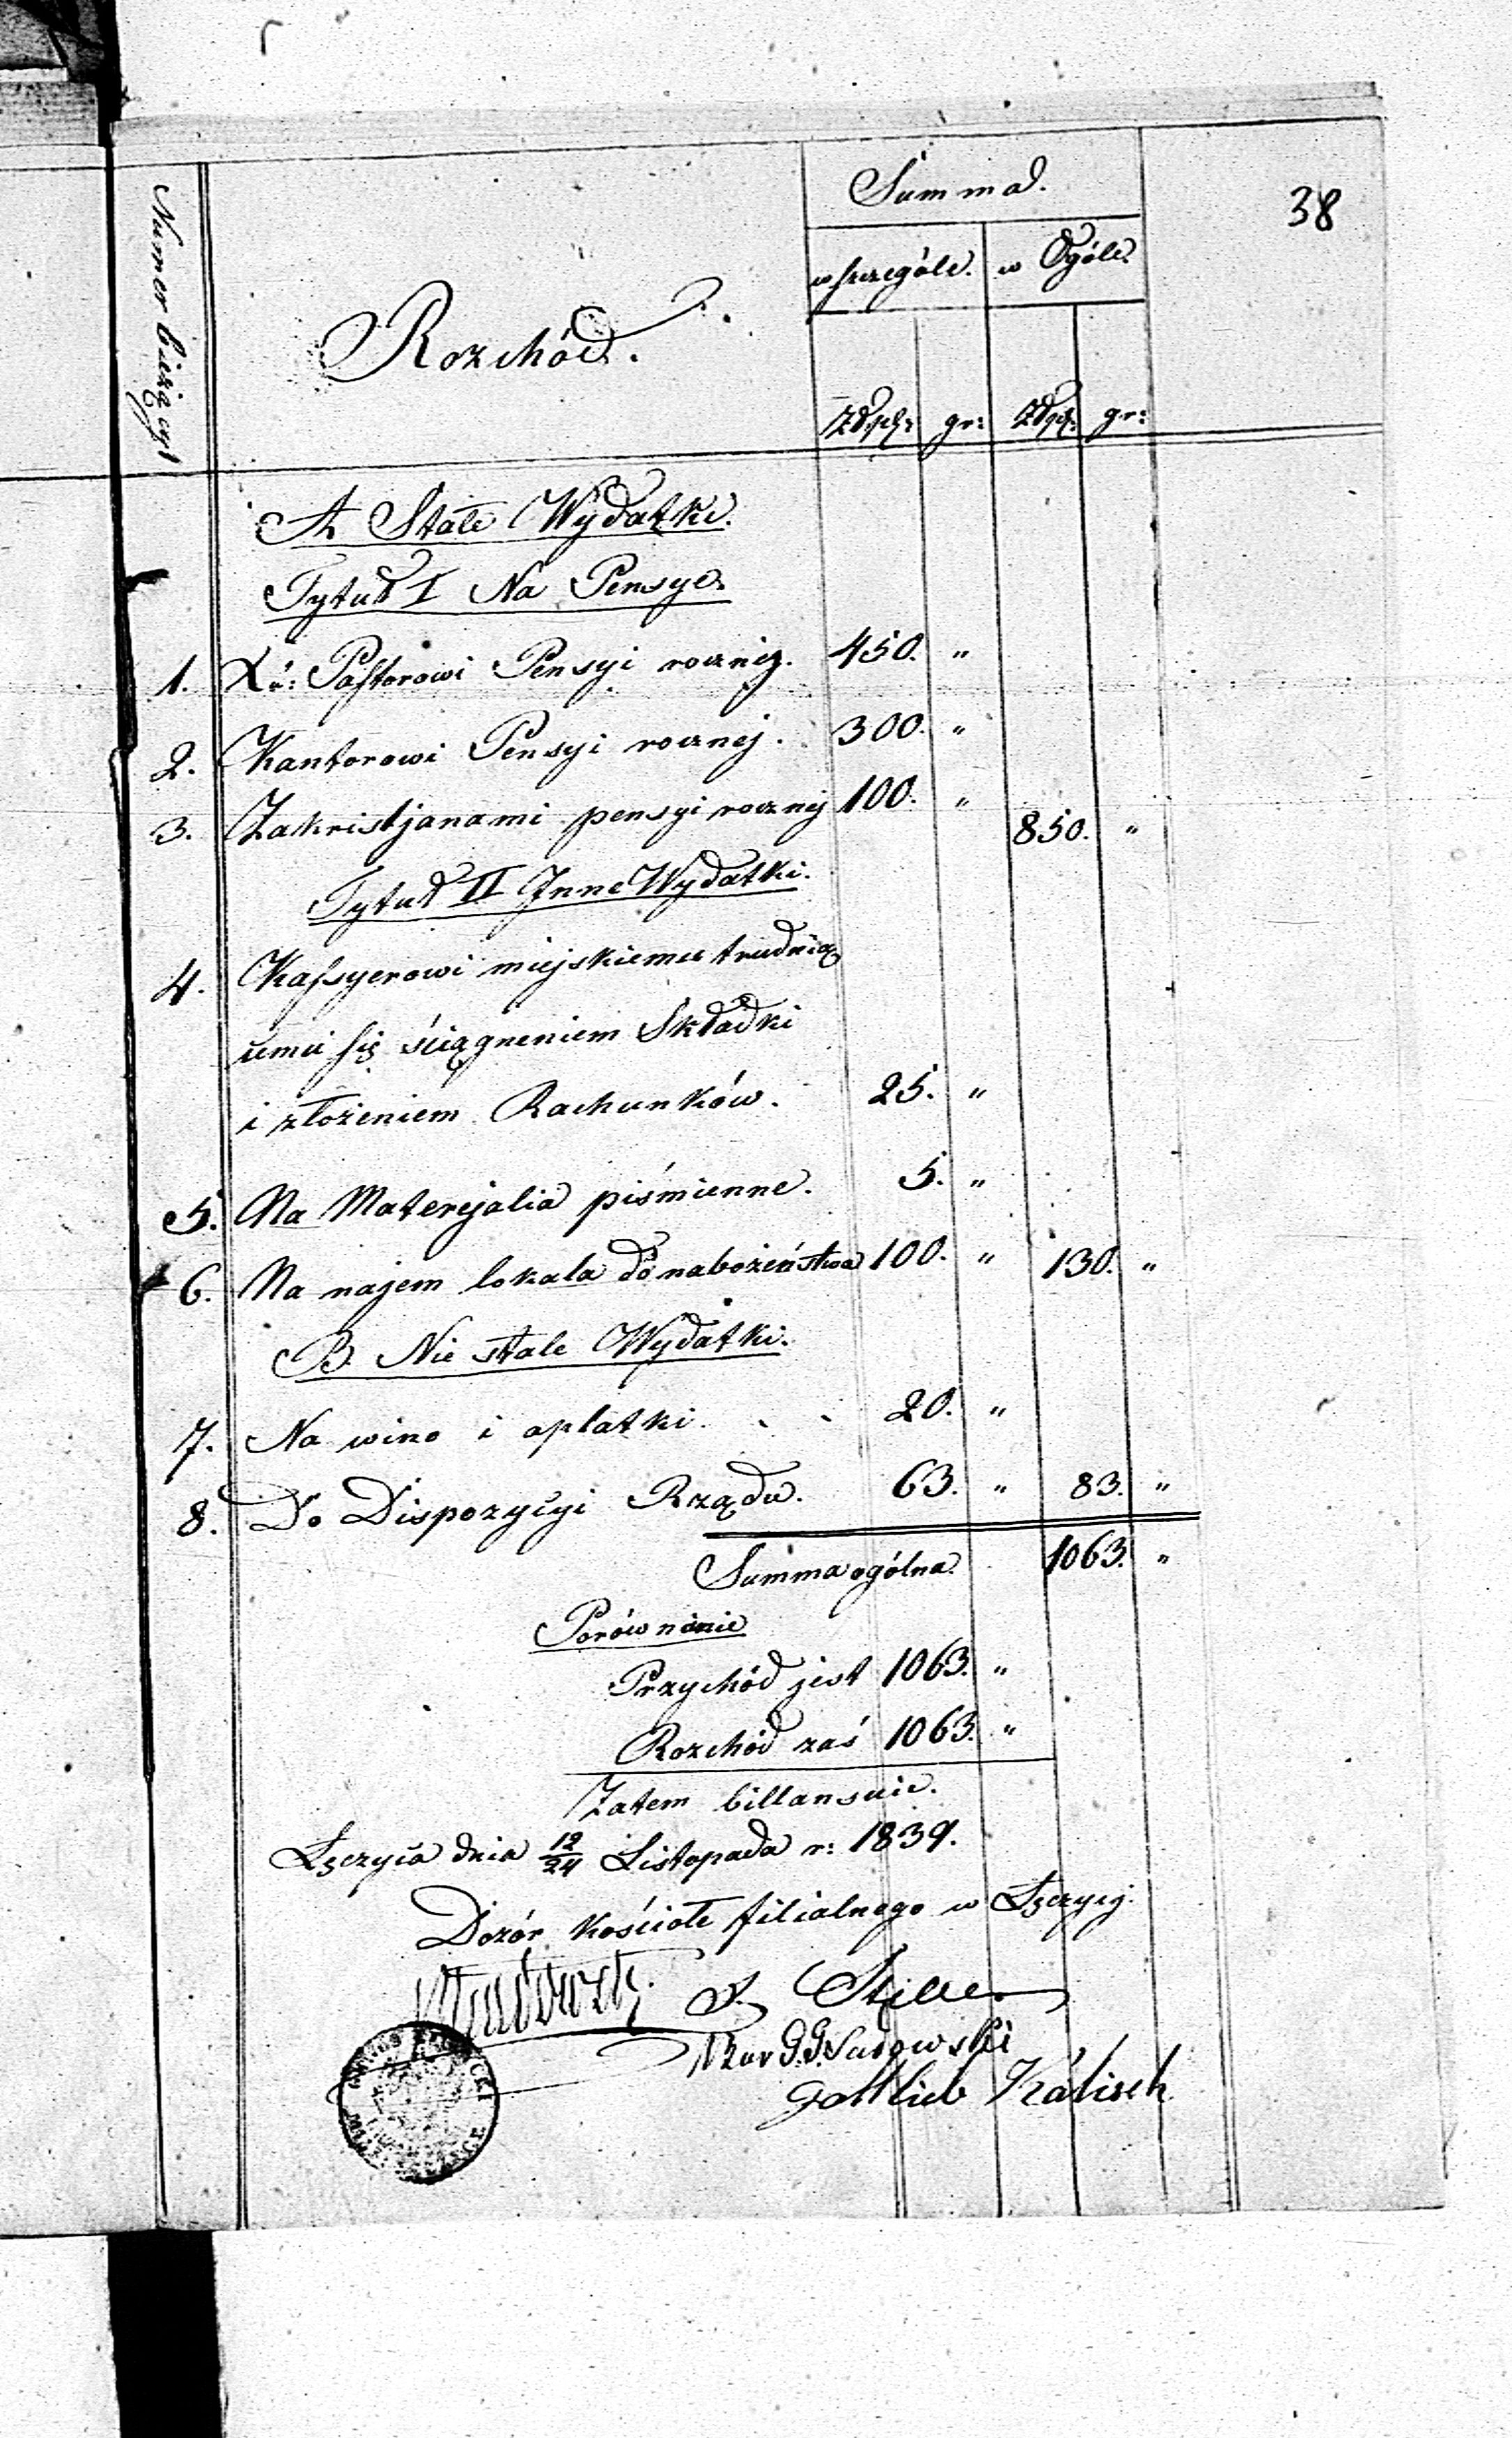 38
Summa.
w szczególe. w Ogóle.
Numer bieżący
Rozchód.
Złpol: gr: Złpl: gr:
A Stałe Wydatki.
Tytuł I Na Pensye.
1. Xu: Pastorowi Pensyi roczniej. 450. "
2. Kantorowi Pensyi rocznej. 300. "
3. Zakristjanami pensyi rocznej 100. " 850. "
Tytuł II Inne Wydatki.
4. Kassyerowi miejskiemu trudnią
cemu się ściągneniem Składki
i złożeniem Rachunków. 25. "
5. Na Materyalia piśmienne. 5. "
6. Na najem lokala do nabożeństwa 100. " 130. "
B. Nie stałe Wydatki.
7. Na wino i opłatki . . . 20. "
8. Do Dispozycyi Rządu. 63. " 83. "
Summa ogólna. 1063. "
Porównanie
Przychód jest 1063. "
Rozchód zaś 1063. "
Zatem billansuie.
Łęczyca dnia 12/24 Listopada r: 1839.
Dozór kościoła filialnego w Łęczycy.
Stiller
G. Sadowski
Gottlieb Kalisch